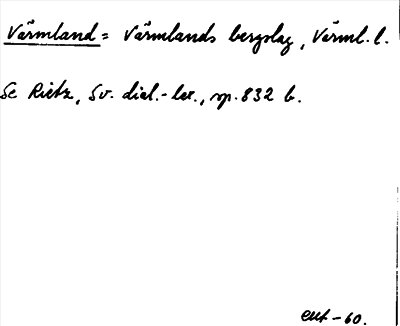 Värmland = Värmlands bergslag, Värml. l.
Se Rietz, Sv. dial.-lex., sp. 832 b.
-60.